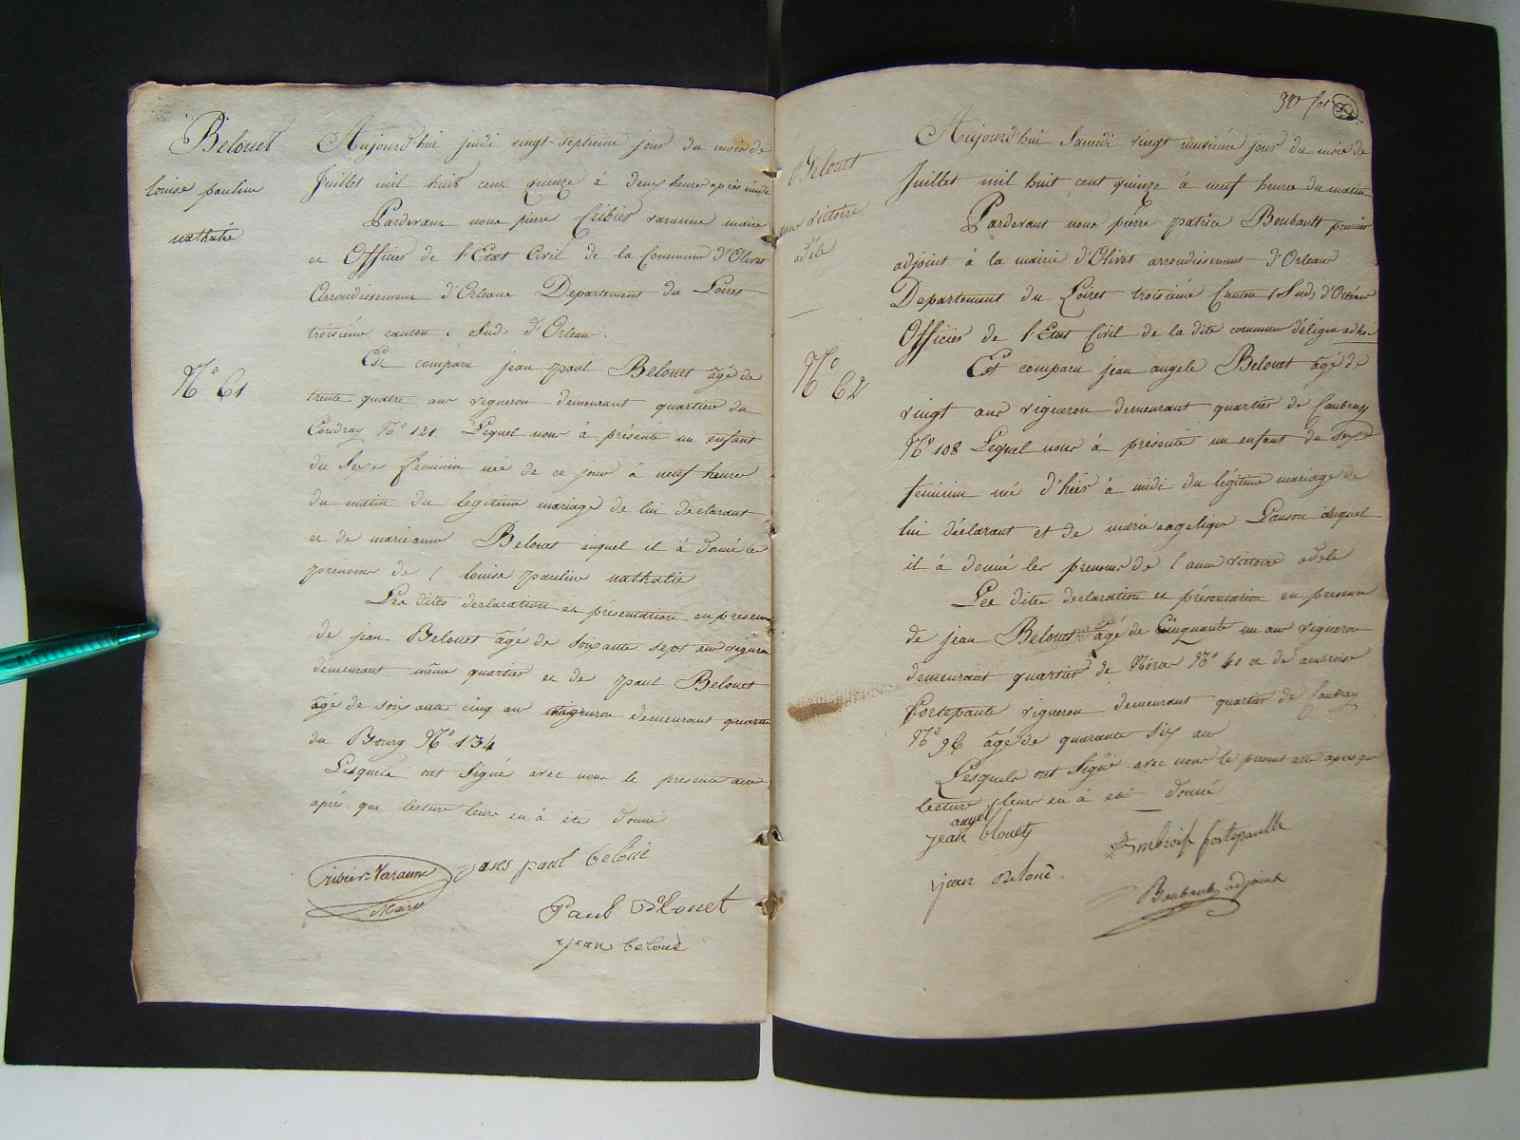 Belouet
louise pauline
nathalie
N° 61
Aujourd'hui jeudi vingt-septieme jour du mois de
Juillet mil huit cent quinze à deux heures après midi
Pardevant nous pierre Cribier varenne maire
et Officier de l'Etat Civil de la Commune d'Olivet
Arrondissement d'Orleans Departement du Loiret
troisieme canton : Sud, d'Orleans.
Est comparu jean paul Belouet âgé de
trente quatre ans vigneron demeurant quartier du
Coudray N° 121. Lequel nous à présenté un enfant
du Sexe féminin née de ce jour à neuf heures
du matin du légitime mariage de lui déclarant
et de marie anne Belouet auquel il à donné les
prenoms de / louise pauline nathalie
Les dites declaration et présentation en présence
de jean Belouet âgé de soixante sept ans vigneron
demeurant même quartier et de paul Belouet
âgé de soixante cinq ans vigneron demeurant quartier
du Bourg N° 134
Lesquels ont Signé avec nous le present acte
après que lecture leur en à été donné
Cribier Varenne
Maire
jans paul beloüe
Paul Blouet
jean beloué
Belouet
anne victoire
adele
N° 62
Aujourd'hui Samedi vingt neuvieme jour du mois de
Juillet mil huit cent quinze à neuf heures du matin
Pardevant nous pierre patrice Boubault premier
adjoint à la mairie d'Olivet arrondissement d'Orleans
Departement du Loiret troisieme Canton (Sud) d'Orléans
Officier de l'Etat Civil de la dite commune délégué
Est comparu jean angele Belouet âgé de
vingt ans vigneron demeurant quartier de Caubray
N° 108 Lequel nous à présenté un enfant de sexe
féminin né d'hier à midi du légitime mariage de
lui déclarant et de marie angelique Lanson auquel
il à donné les prenoms de / anne victoire adele
Les dites declaration et présentation en presence
de jean Belouet âgé de Cinquante un ans vigneron
demeurant quartier de N° 40 et de ambroise
fortepaulle vigneron demeurant quartier de Caubray
N° 96 âgé de quarante six ans
Lesquels ont Signé avec nous le present acte après que
lecture leur en à été donné
angel
jean blouet
Ambroise fortepaulle
jean beloué.
Boubault adjoint